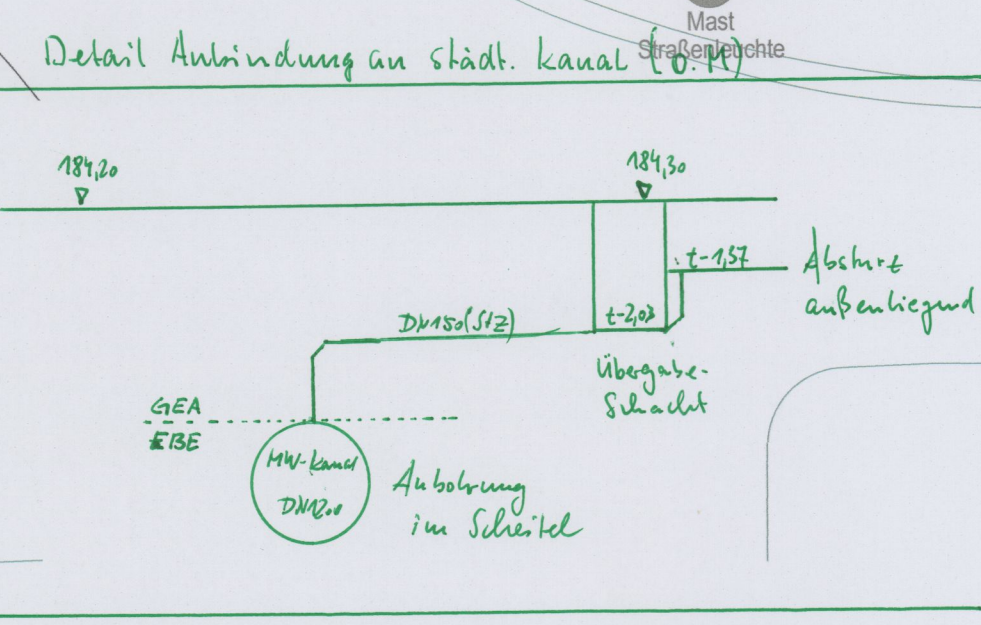 Mast
Straßenleuchte
Detail Anbindung an städt. Kanal (o.M)
184,20
184,30
t-1,37
Absturz
außenliegend
DN150(StZ)
t-2,03
Übergabe-
Schacht
GEA
EBE
MW-Kanal
DN1200
Anbohrung
im Scheitel